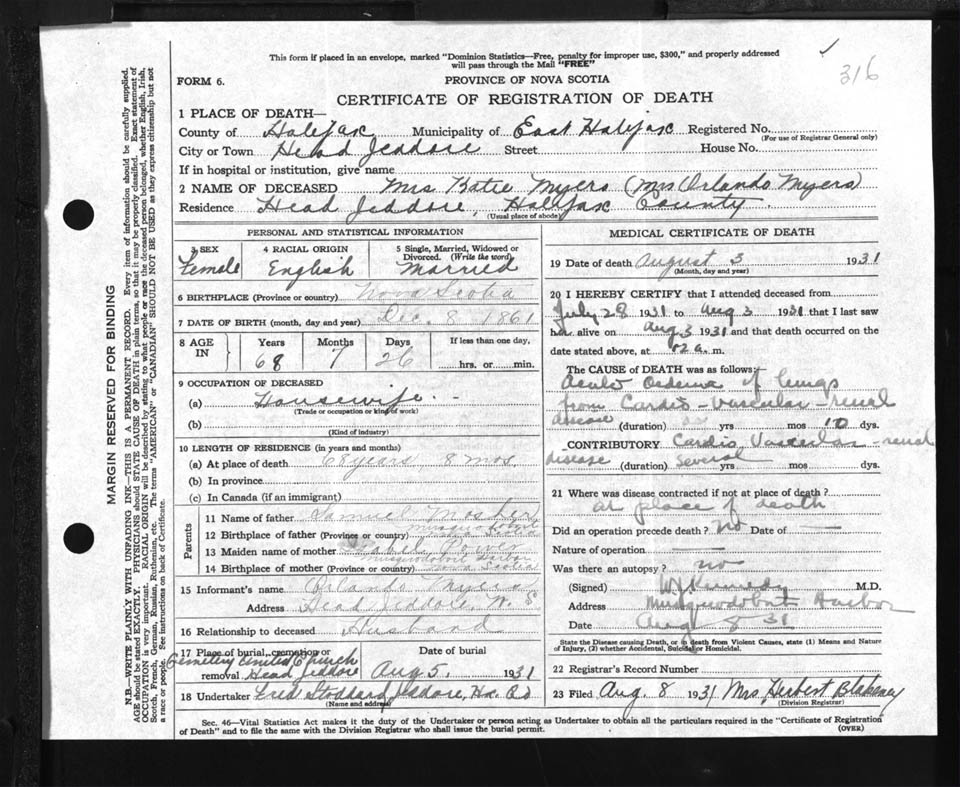 316
This form if placed in an envelope, marked "Dominion Statistics—Free, penalty for improper use, $300," and properly addressed
will pass through the Mail "FREE"
FORM 6.
PROVINCE OF NOVA SCOTIA
CERTIFICATE OF REGISTRATION OF DEATH
1 PLACE OF DEATH—
County of Halifax Municipality of East Halifax Registered No.
(For use of Registrar General only)
City or Town Head Jeddore Street House No.
If in hospital or institution, give name
2 NAME OF DECEASED Mrs Katie Myers (Mrs Orlando Myers)
Residence Head Jeddore, Halifax County.
(Usual place of abode)
PERSONAL AND STATISTICAL INFORMATION
3 SEX Female
4 RACIAL ORIGIN English
5 Single, Married, Widowed or
Divorced. (Write the word)
Married
6 BIRTHPLACE (Province or country) Nova Scotia
7 DATE OF BIRTH (month, day and year) Dec. 8 1861
8 AGE IN
Years 68 Months 7 Days 26
If less than one day,
hrs. or min.
9 OCCUPATION OF DECEASED
(a) Housewife
(Trade or occupation or kind of work)
(b)
(Kind of industry)
10 LENGTH OF RESIDENCE (in years and months)
(a) At place of death 68 years, 8 mos.
(b) In province
(c) In Canada (if an immigrant)
Parents
11 Name of father Samuel Mosher
12 Birthplace of father (Province or country)
13 Maiden name of mother
14 Birthplace of mother (Province or country) Nova Scotia
15 Informant's name Orlando Myers
Address Head Jeddore, N. S
16 Relationship to deceased Husband
17 Place of burial, cremation or
removal
Cemetery United Church
Head Jeddore
Date of burial
Aug 5, 1931
18 Undertaker Fred Stoddard, Jeddore, Hx. Co
(Name and address)
MEDICAL CERTIFICATE OF DEATH
19 Date of death August 3 1931
(Month, day and year)
20 I HEREBY CERTIFY that I attended deceased from
July 28 1931 to Aug 3 1931 that I last saw
her alive on Aug 3 1931 and that death occurred on the
date stated above, at a. m.
The CAUSE of DEATH was as follows:
Acute Oedema of lungs
from Cardio-Vascular-renal
disease (duration) yrs mos 10 dys.
CONTRIBUTORY Cardio Vascular-renal
disease (duration) Several yrs mos dys.
21 Where was disease contracted if not at place of death?
at place of death
Did an operation precede death? No Date of —
Nature of operation —
Was there an autopsy? no
(Signed) W J Kennedy M.D.
Address Musquodoboit Harbor
Date Aug 8 31
State the Disease causing Death, or if death from Violent Causes, state (1) Means and Nature
of Injury, (2) whether Accidental, Suicidal or Homicidal.
22 Registrar's Record Number
23 Filed Aug. 8 1931 Mrs. Herbert Blakeney
(Division Registrar)
Sec. 46—Vital Statistics Act makes it the duty of the Undertaker or person acting as Undertaker to obtain all the particulars required in the "Certificate of Registration
of Death" and to file the same with the Division Registrar who shall issue the burial permit.
(OVER)
MARGIN RESERVED FOR BINDING
N.B.—WRITE PLAINLY WITH UNFADING INK—THIS IS A PERMANENT RECORD. Every item of information should be carefully supplied.
AGE should be stated EXACTLY. PHYSICIANS should STATE CAUSE OF DEATH in plain terms, so that it may be properly classified. Exact statement of
OCCUPATION is very important. RACIAL ORIGIN will be described by stating to what people or race the deceased person belonged, whether English, Irish,
Scotch, French, German, Russian, Ruthenian, etc. The terms "AMERICAN" or "CANADIAN" SHOULD NOT BE USED as they express citizenship but not
a race or people. See instructions on back of Certificate.